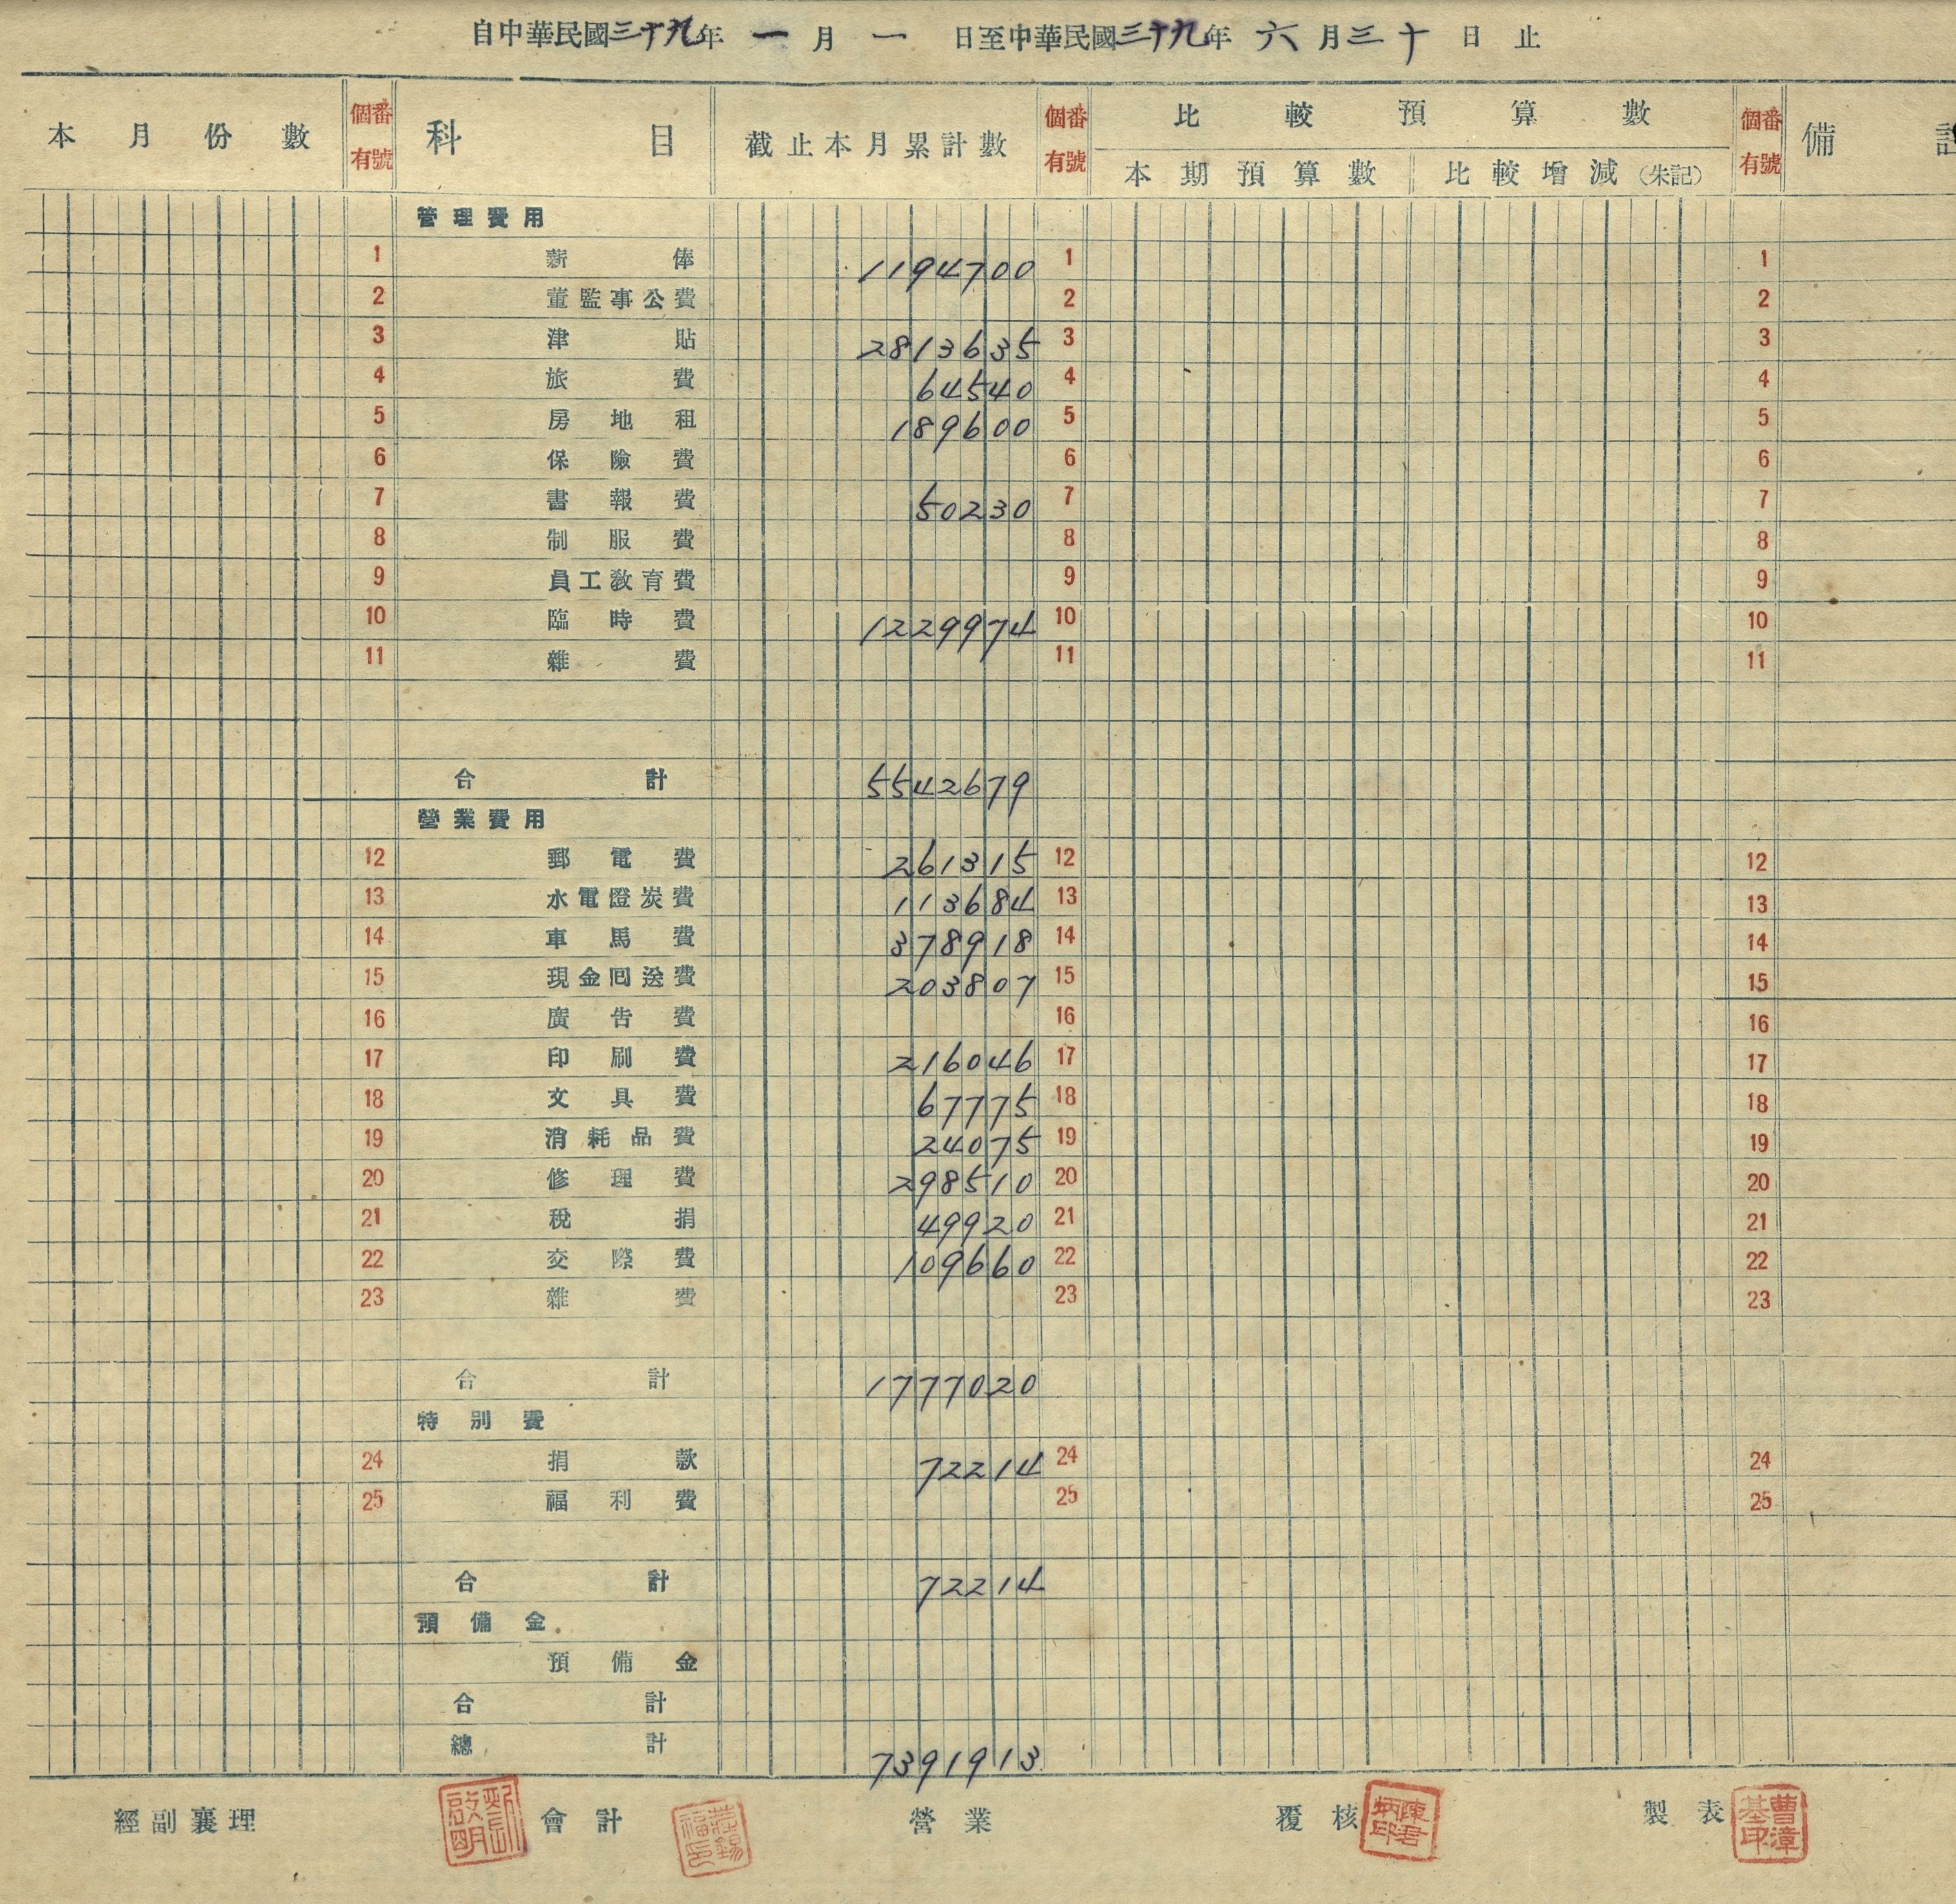 自中華民國三十九年 一月 一 日至中華民國三十九年 六月三十日止
本月份數 個有番號 科目 截止本月累計數 個有番號 比較預算數 個有番號 備
本期預算數 比較增減（朱記）
管理費用
1 薪俸 1194700 1 1
2 董監事公費 2 2
3 津貼 2813635 3 3
4 旅費 64540 4 4
5 房地租 189600 5 5
6 保險費 6 6
7 書報費 50230 7 7
8 制服費 8 8
9 員工教育費 9 9
10 臨時費 1229974 10 10
11 雜費 11 11
合計 5542679
營業費用
12 郵電費 261315 12 12
13 水電燈炭費 113684 13 13
14 車馬費 378918 14 14
15 現金回送費 203807 15 15
16 廣告費 16 16
17 印刷費 216046 17 17
18 文具費 67775 18 18
19 消耗品費 24075 19 19
20 修理費 298510 20 20
21 稅捐 49920 21 21
22 交際費 109660 22 22
23 雜費 23 23
合計 1777020
特別費
24 捐款 72214 24 24
25 福利費 25 25
合計 72214
預備金
預備金
合計
總計 7391913
經副襄理 啟明 會計 莊錫福印 營業 覆核 陳君炳印 製表 曹漳基印